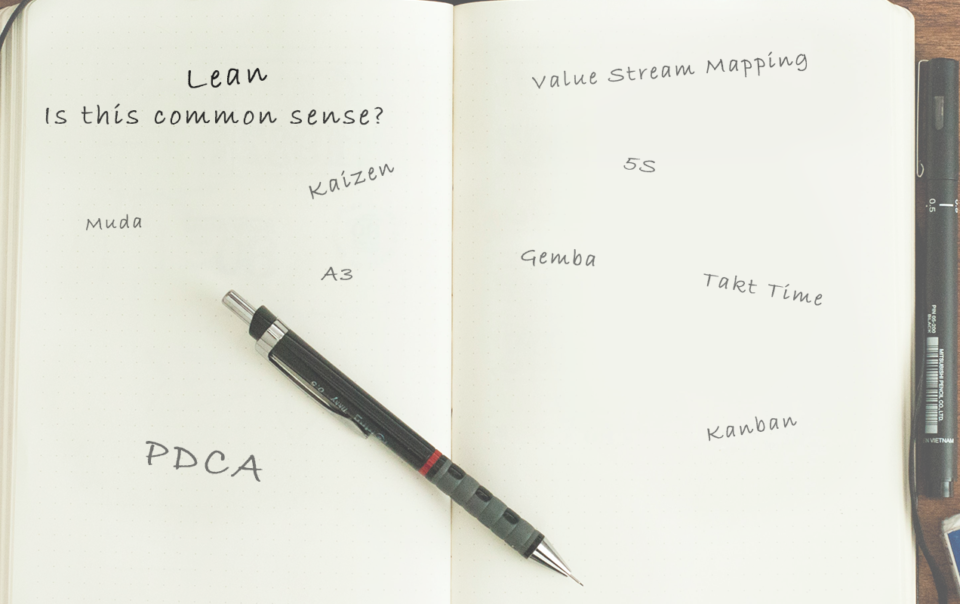 Lean
Is this common sense?
Kaizen
Muda
A3
PDCA
Value Stream Mapping
5S
Gemba
Takt Time
Kanban
0.5
BLACK
MITSUBISHI PENCIL CO.,LTD.
VIETNAM